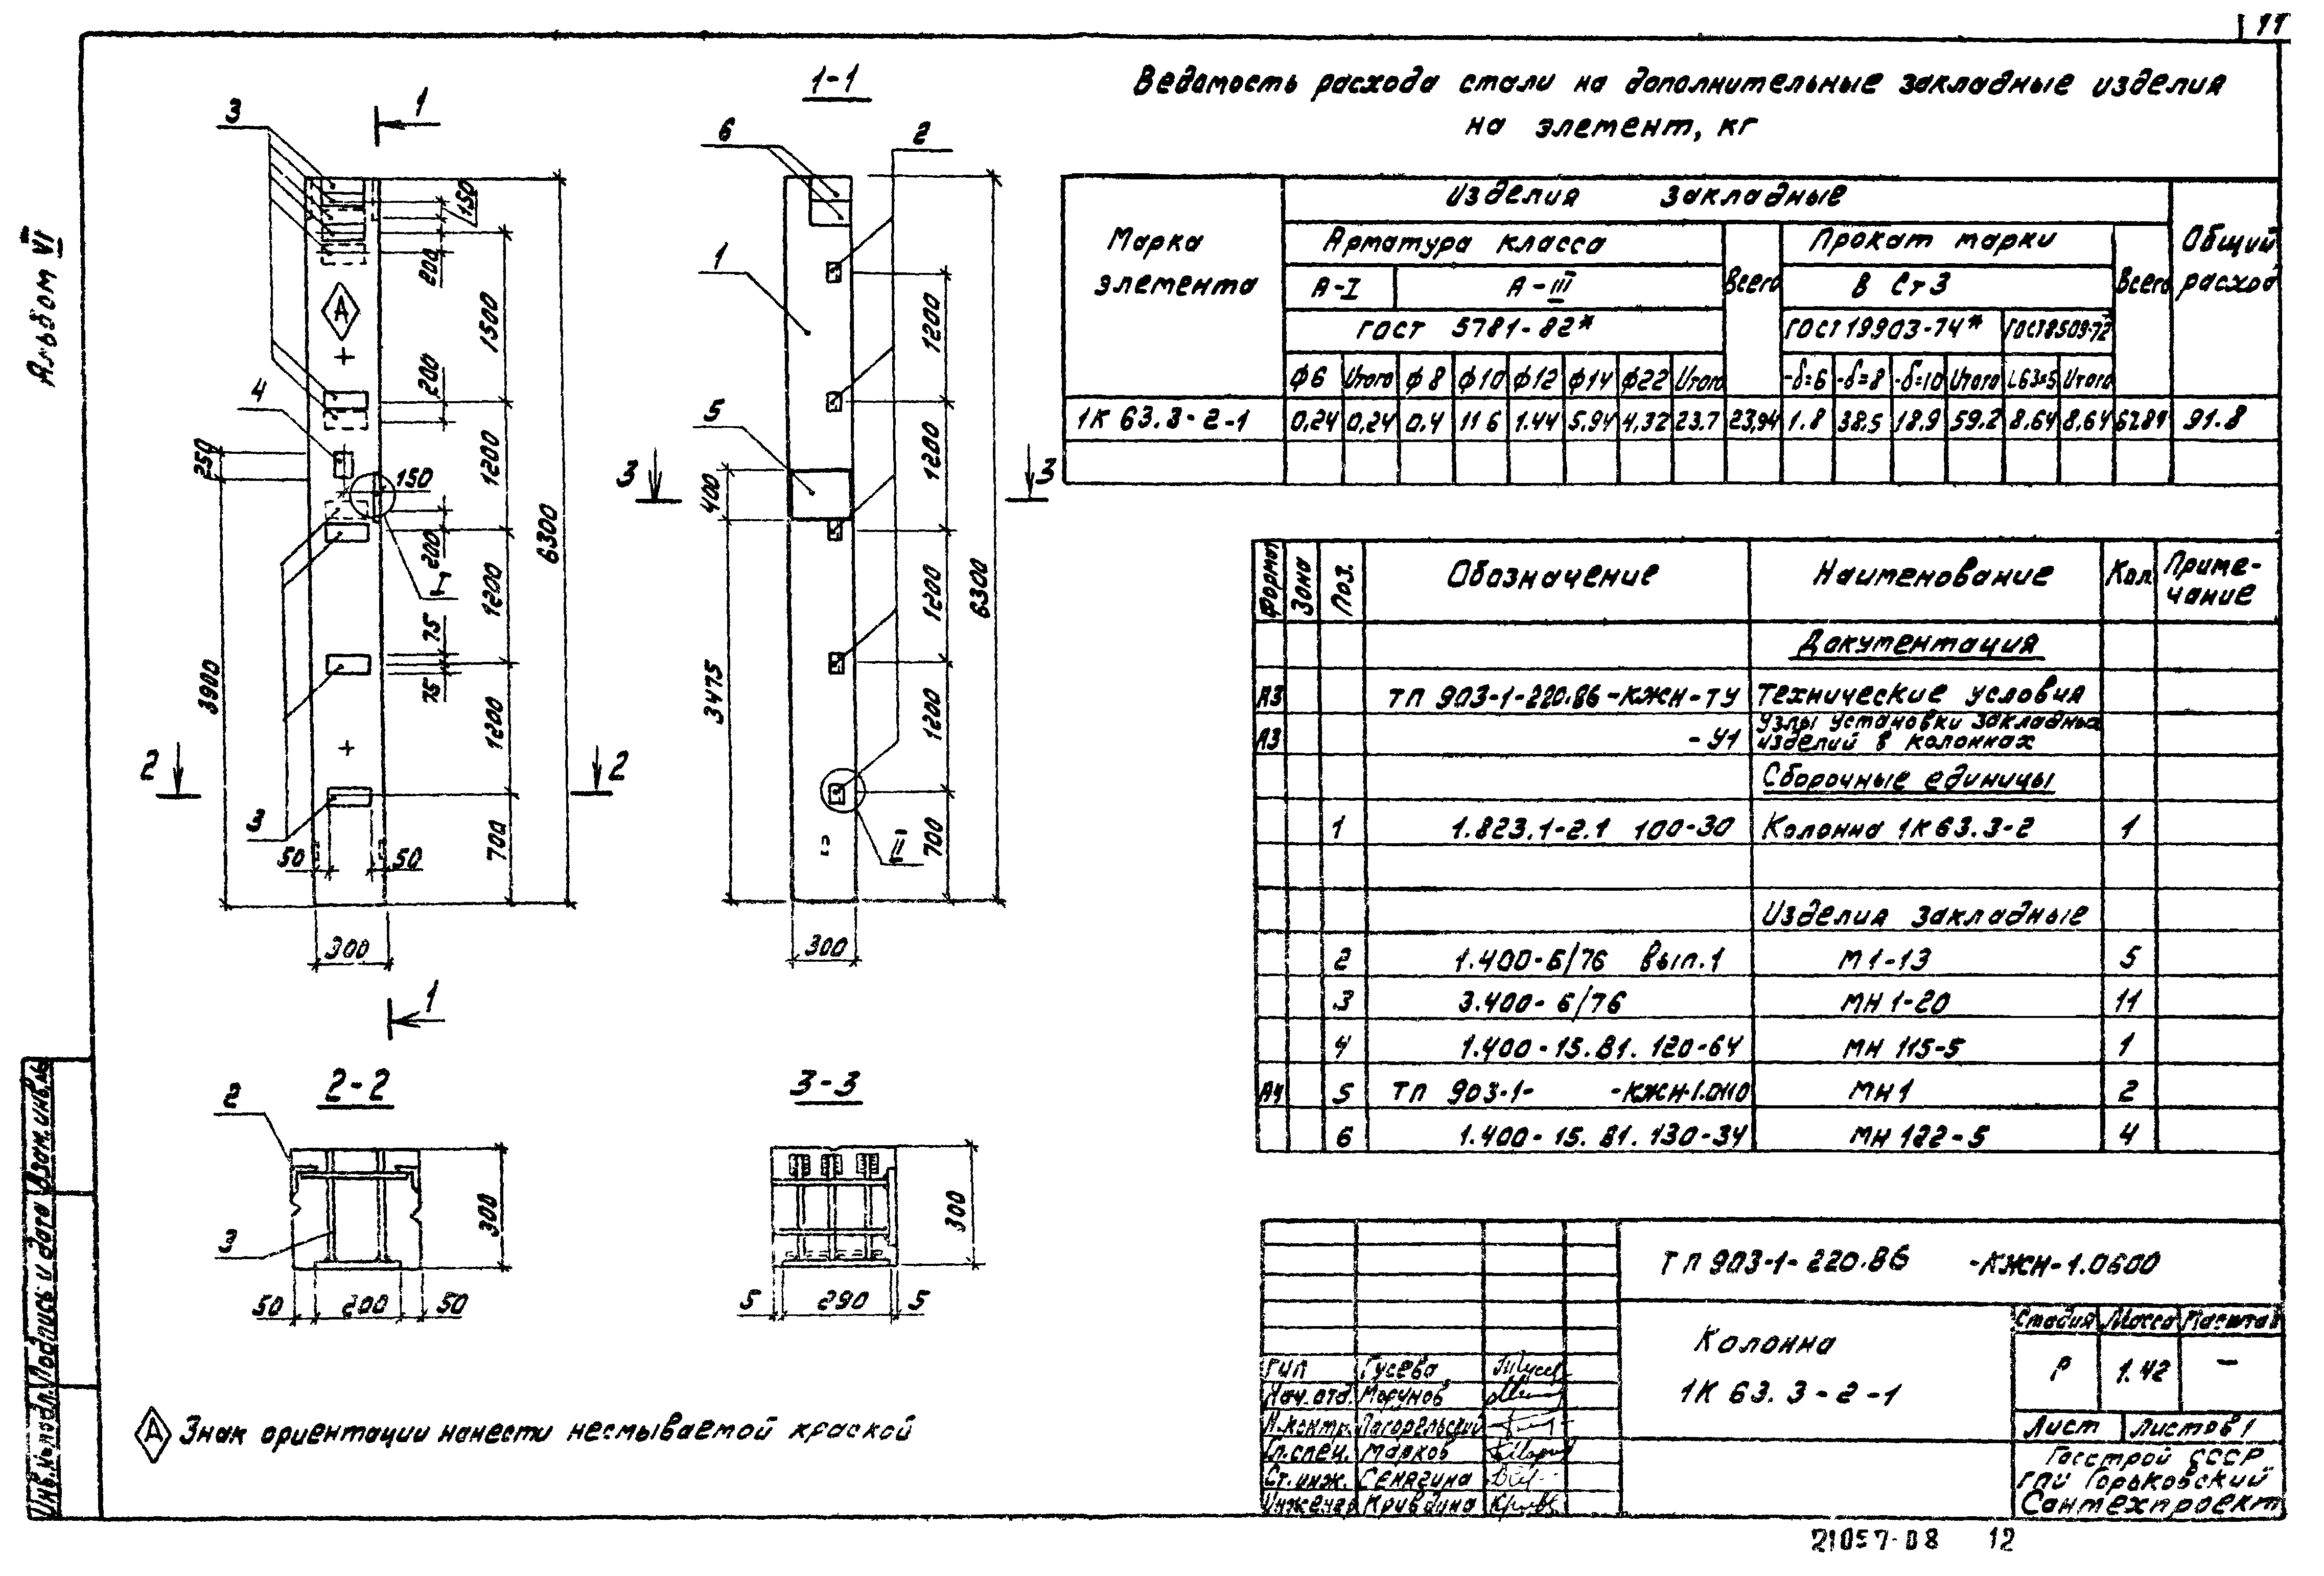 11
Альбом VI
Ведомость расхода стали на дополнительные закладные изделия
на элемент, кг
Марка элемента
Изделия закладные
Общий расход
Арматура класса
Всего
Прокат марки
Всего
А-I
А-III
В Ст 3
ГОСТ 5781-82*
ГОСТ 19903-74*
ГОСТ 8509-72*
ф6 Итого ф8 ф10 ф12 ф14 ф22 Итого -δ=6 -δ=8 -δ=10 Итого L63×5 Итого
1К 63.3-2-1 0,24 0,24 0,4 11 6 1.44 5,94 4,32 23.7 23,94 1.8 38.5 18.9 59.2 8,64 8,64 67.84 91.8
Формат Зона Поз. Обозначение Наименование Кол. Приме-
чание
Документация
А3 ТП 903-1-220.86-КЖН-ТУ Технические условия
А3 -У1 Узлы установки закладных
изделий в колоннах
Сборочные единицы
1 1.823.1-2.1 100-30 Колонна 1К63.3-2 1
Изделия закладные
2 1.400-6/76 Вып.1 М1-13 5
3 3.400-6/76 МН 1-20 11
4 1.400-15.81.120-64 МН 115-5 1
А4 5 ТП 903-1- -КЖН-1.0110 МН1 2
6 1.400-15.81.130-34 МН 122-5 4
3
1
150
200
1500
А
200
4
250
150
1200
200
I
6300
1200
75
75
3900
1200
2
2
3
700
50
50
300
1
1-1
6
2
1
1200
5
1200
3
3
400
1200
6300
3475
1200
II
700
300
2-2
2
3
300
50
200
50
3-3
300
5
290
5
А Знак ориентации нанести несмываемой краской
ТП 903-1-220.86 -КЖН-1.0600
Колонна
1К 63.3-2-1
Стадия Масса Масштаб
Р 1.42 –
Лист Листов 1
Госстрой СССР
ГПИ Горьковский
Сантехпроект
ГИП Гусева
Нач.отд. Морунов
Н.контр. Пагорельский
Гл.спец. Марков
Ст.инж. Сенягина
Инженер Кривдина
Инв.№подл. Подпись и дата Взам.инв.№
21057-08 12